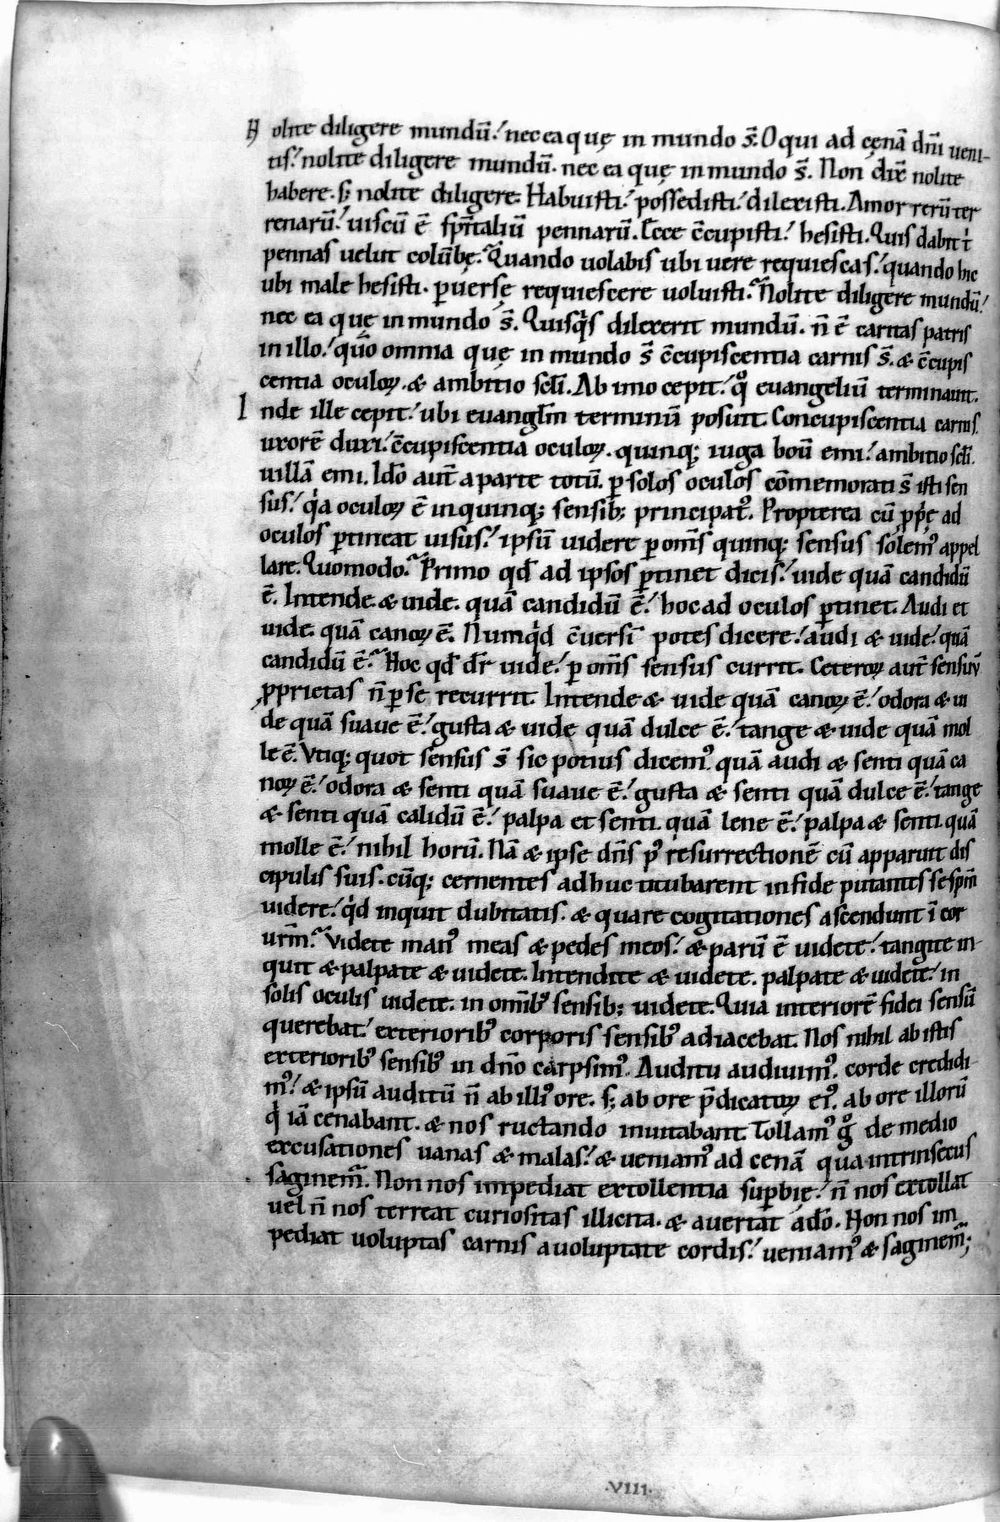 Nolite diligere mundū. nec ea quę in mundo s̄. O qui ad cęnā dn̄i ueni-
tis. nolite diligere mundū. nec ea quę in mundo s̄. Non dix̄ nolite
habere. s; nolite diligere. Habuisti. possedisti. dilexisti. Amor rerū ter
renarū. uiscū ē sp̄ritaliū pennarū. Ecce c̄cupisti. hesisti. Quis dabit t̄
pennas uelut colūbę. Quando uolabis ubi uere requiescas. quando hic
ubi male hesisti. ꝑuersę requiescere uoluisti. Nolite diligere mundū.
nec ea quę in mundo s̄. Quisq̇s dilexerit mundū. n̄ ē caritas patris
in illo. qūo omnia quę in mundo s̄ c̄cupiscentia carnis s̄. & c̄cupis
centia oculoꝝ. & ambitio sc̄li. Ab imo cepit. q̊ euangeliū terminauit.
Inde ille cepit. ubi euangl̄m terminū posuit. Concupiscentia carnis.
uxorē duxi. c̄cupiscentia oculoꝝ. quinq; iuga boū emi. ambitio sc̄li.
uillā emi. Ido aut̄ a parte totū. ꝑ solos oculos cōmemorati s̄ isti sen
sus. q̇a oculoꝝ ē in quinq; sensib; principat᾽. Propterea cū ꝓp̄ę ad
oculos ꝑtineat uisus. ipsū uidere ꝑ om̄s quinq; sensus solem᾽ appel
lare. Quomodo. Primo qđ ad ipsos ꝑtinet dicis. uide quā candidū
ē. Intende. & uide. quā candidū ē. hoc ad oculos ꝑtinet. Audi et
uide. quā canoꝝ ē. Numq̇d c̄uersī potes dicere. audi & uide. quā
candidū ē. Hoc qđ dr̄ uide. ꝑ om̄s sensus currit. Ceteroꝝ aut̄ sensuū
ꝓprietas n̄ ꝑ se recurrit. Intende & uide quā canoꝝ ē. odora & ui
de quā suaue ē. gusta & uide quā dulce ē. tange & uide quā mol
le ē. Vtiq; quot sensus s̄ sic potius dicem᾽. quā audi & senti quā ca
noꝝ ē. odora & senti quā suaue ē. gusta & senti quā dulce ē. tange
& senti quā calidū ē. palpa et senti quā lene ē. palpa & senti quā
molle ē. nihil horū. Nā & ipse dn̄s p᾽ resurrectionē cū apparuit dis
cipulis suis. cūq; cernentes adhuc titubarent in fide putantes se sp̄m
uidere. q̇d inquit dubitatis. & quare cogitationes ascendunt ī cor
ur̄m. Videte man᾽ meas & pedes meos. & parū ē uidete. tangite in-
quit & palpate & uidete. Intendite & uidete. palpate & uidete. in
solis oculis uidete. in omīb᾽ sensib; uidete. Quia interiorē fidei sensū
querebat. exteriorib᾽ corporis sensib᾽ adiacebat. Nos nihil ab istis
exteriorib᾽ sensib᾽ in dn̄o carpsim᾽. Auditu audiuim᾽. corde credidi-
m᾽. & ipsū auditū n̄ ab illi᾽ ore. s; ab ore p̄dicatoꝝ ei᾽. ab ore illorū
q̇ iā cenabant. & nos ructando inuitabant. Tollam᾽ g̊ de medio
excusationes uanas & malas. & ueniam᾽ ad cenā qua intrinsecus
saginem̄. Non nos impediat extollentia suꝑbię. n̄ nos extollat
uel n̄ nos terreat curiositas illicita. & auertat a do. Non nos im
pediat uoluptas carnis a uoluptate cordis. ueniam᾽ & saginem̄;
.VIII.